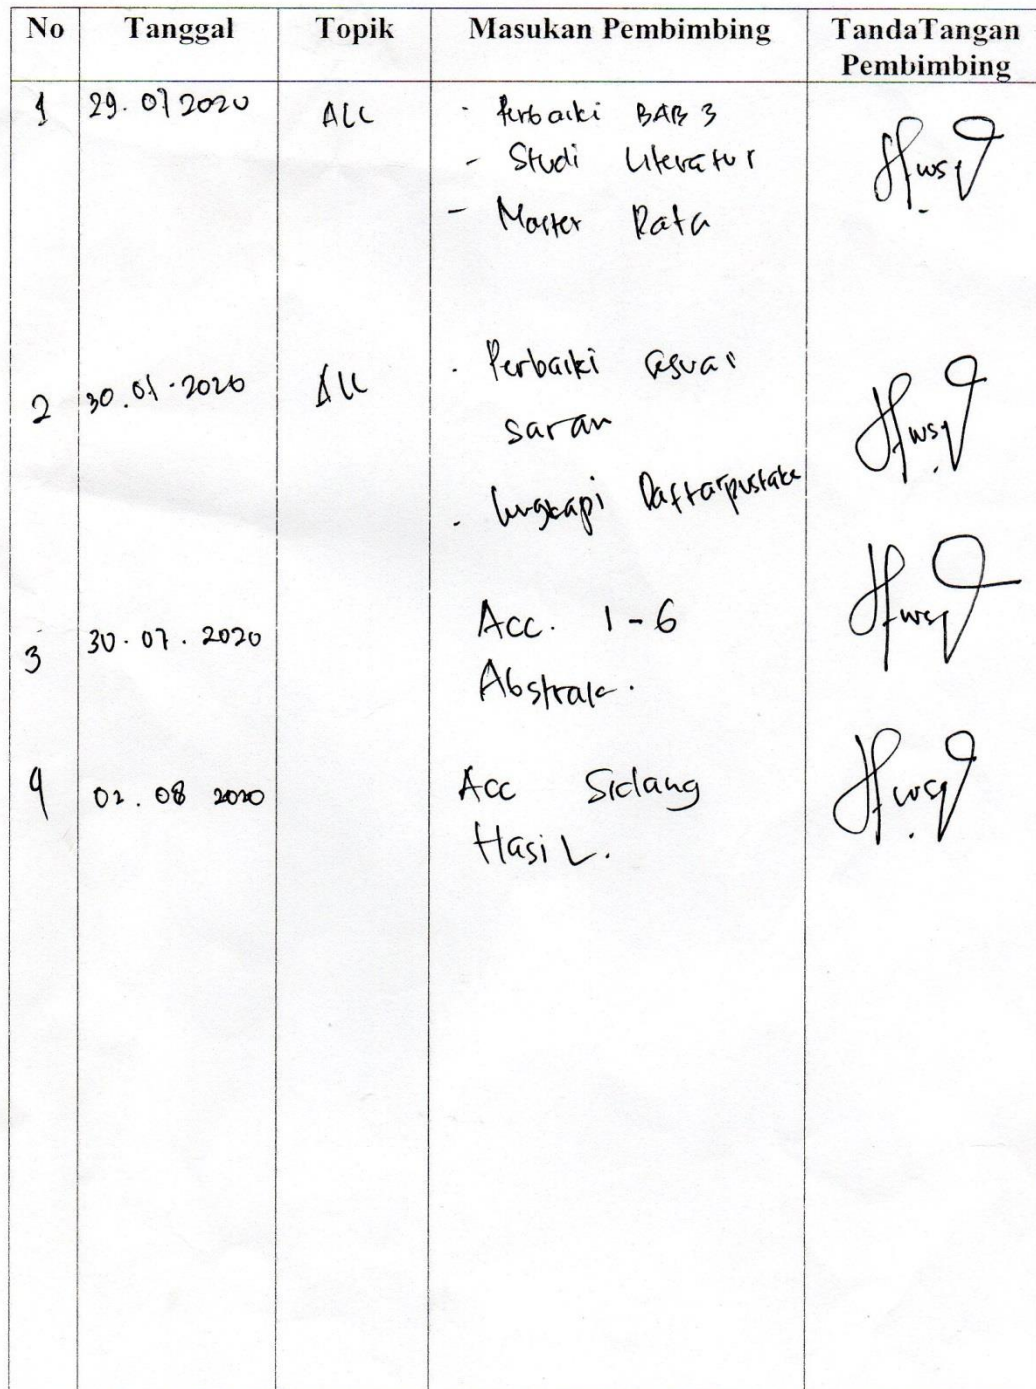 No Tanggal Topik Masukan Pembimbing TandaTangan
Pembimbing
1 29. 07 2020 ALL - Perbaiki BAB 3
- Studi Literatur
- Master Data
2 30. 07 . 2020 ALL . Perbaiki sesuai
saran
. lengkapi Daftar pustaka
3 30 . 07 . 2020 Acc. 1 - 6
Abstrak .
4 02 . 08 2020 Acc Sidang
Hasil .